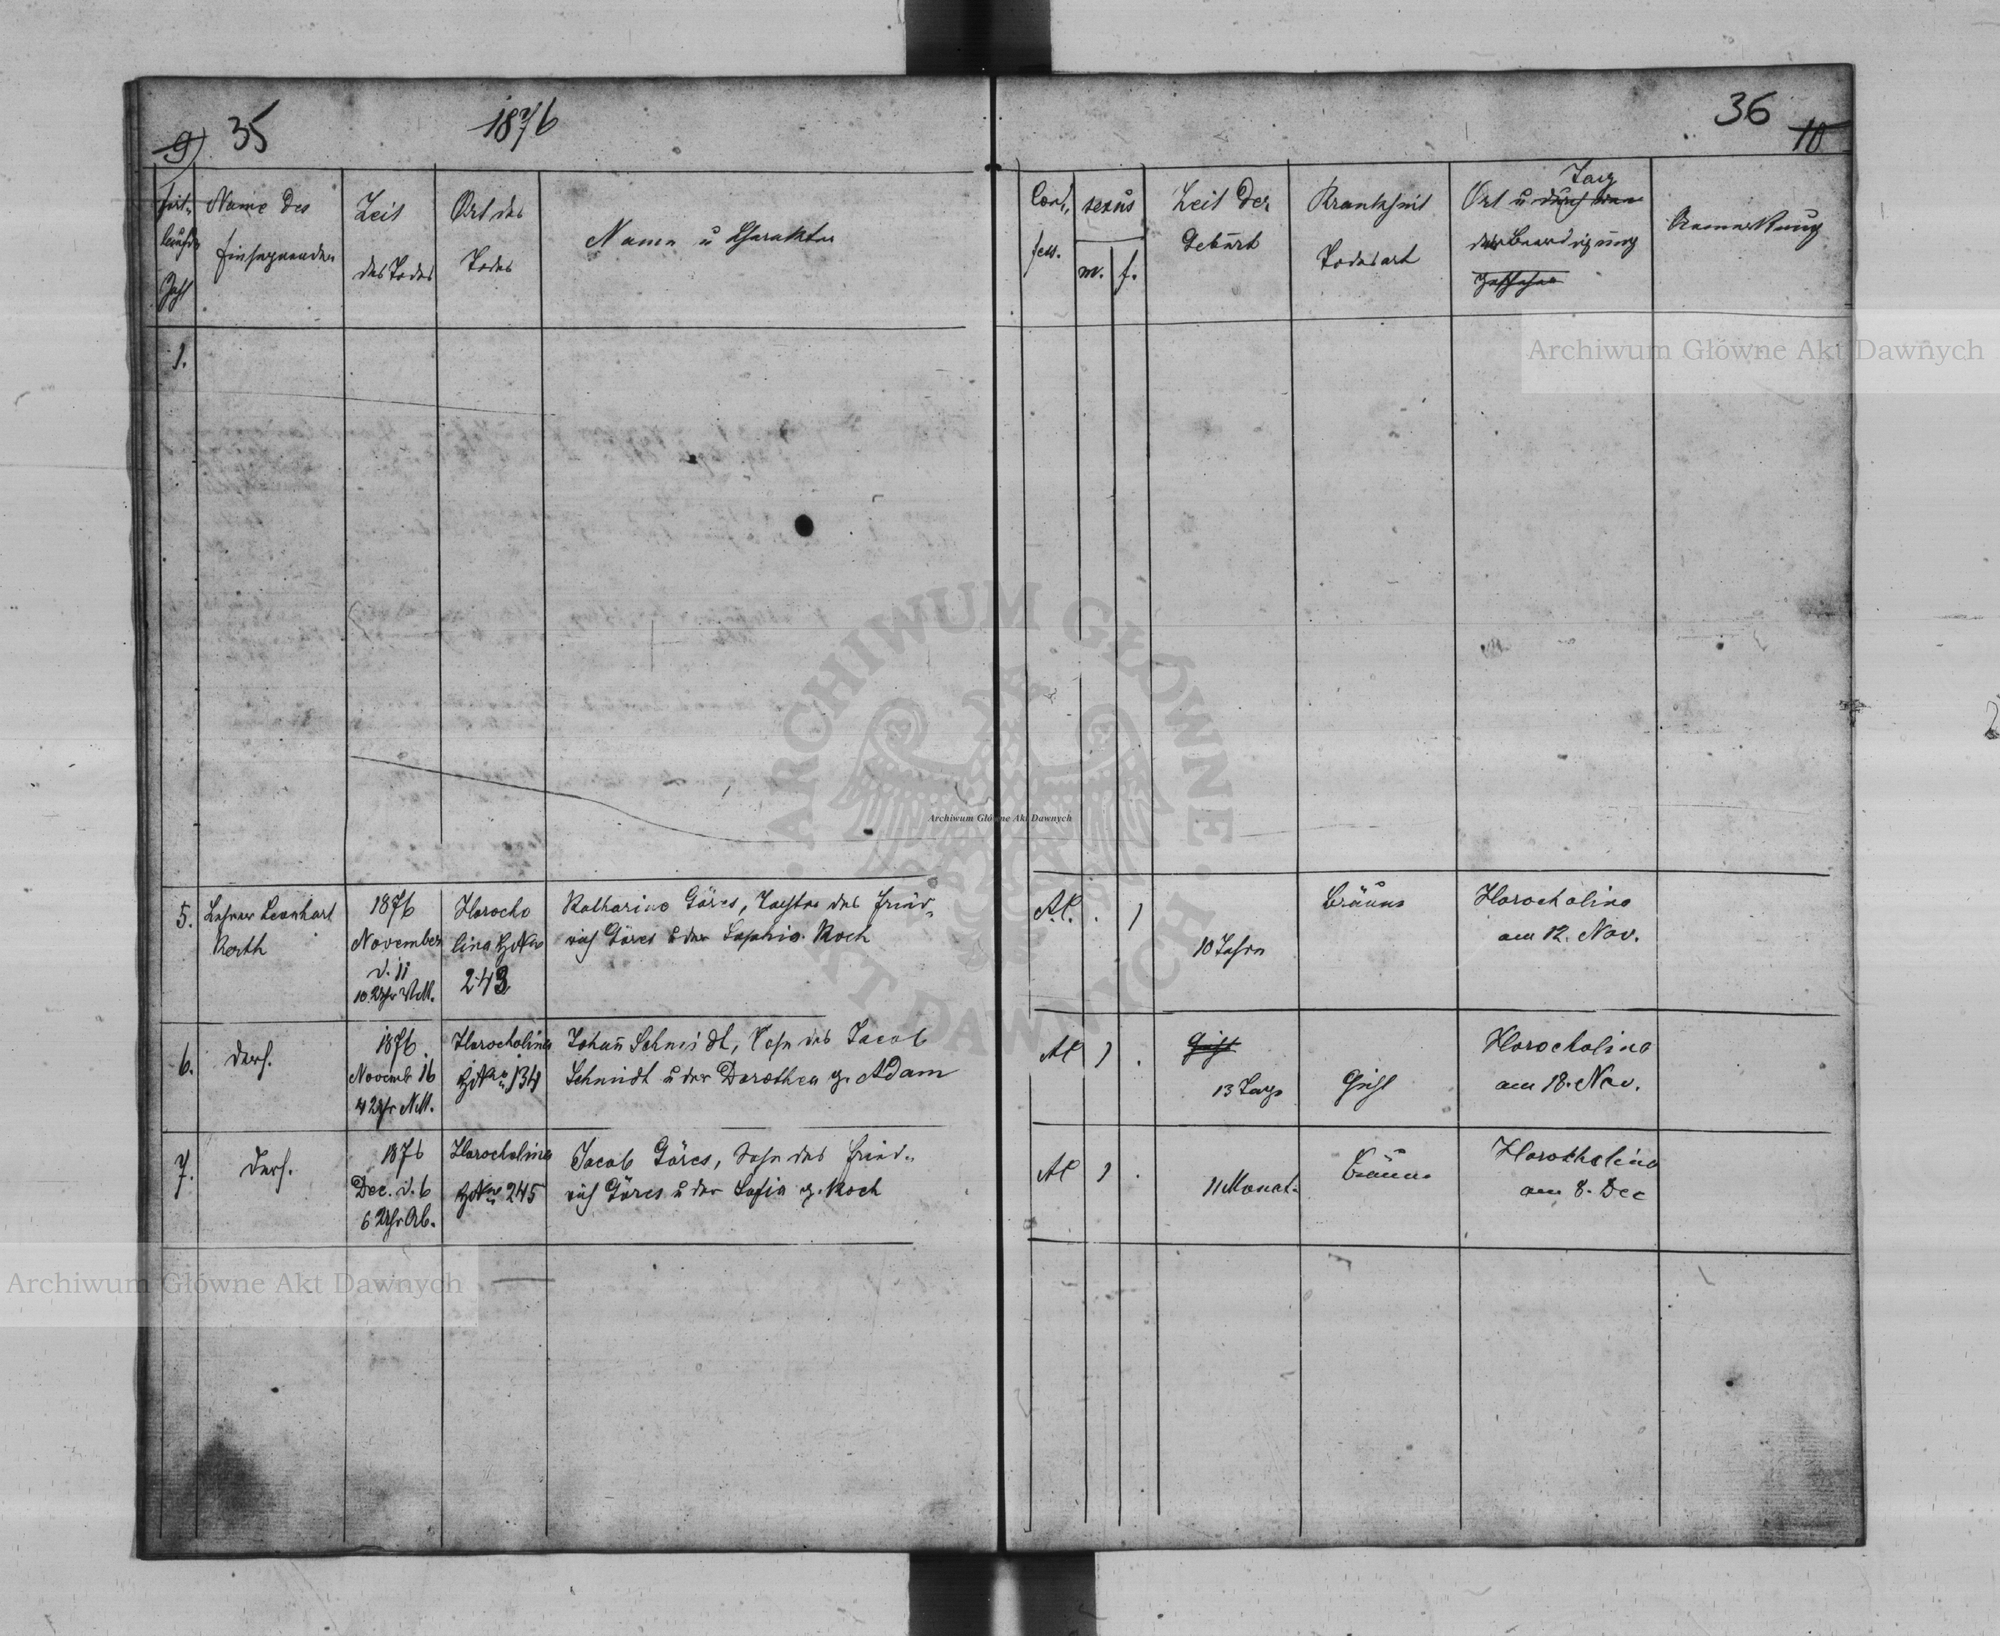 9) 35 1876
36 10
Fort-
laufde
Zahl
Name des
Einsegnenden
Zeit
des Todes
Ort des
Todes
Name u Charakter
Con-
fess.
sexus
m. f.
Zeit der
Geburt
Krankheit
Todesart
Tag
Ort u
der Beerdigung
Anmerkung
1.
Archiwum Główne Akt Dawnych
ARCHIWUM GŁÓWNE AKT DAWNYCH
Archiwum Główne Akt Dawnych
5. Lehrer Leonhart
Korth
1876
November
d. 11
10 Uhr VM.
Horocho
lina HNro
243
Katharina Göres, Tochter des Fried-
rich Göres u der Sophia Koch
AC. . 1
10 Jahre
Bräune
Horocholina
am 12. Nov.
6. Ders.
1876
Novemb 16
4 Uhr NM.
Horocholina
HNro 134
Johann Schmidt, Sohn des Jacob
Schmidt u der Dorothea g. Adam
AC 1 .
13 Tage
Gicht
Horocholina
am 18. Nov.
7. Ders.
1876
Dec. d. 6
6 Uhr Ab.
Horocholina
HNro 245
Jacob Göres, Sohn des Fried-
rich Göres u der Sofia g. Koch
AC 1 .
11 Monat.
Bräune
Horocholina
am 8. Dec
Archiwum Główne Akt Dawnych